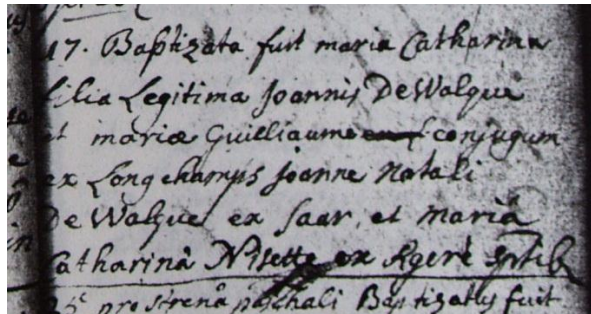 17. Baptizata fuit maria Catharina
filia Legitima Joannis DeWalque
et mariæ Guilliaume conjugum
ex Longchamps Joanne Natali
De Walque ex Saar et mariâ
Catharinâ Nisette ex Ageré
25 pro strenâ paschali Baptizatus fuit